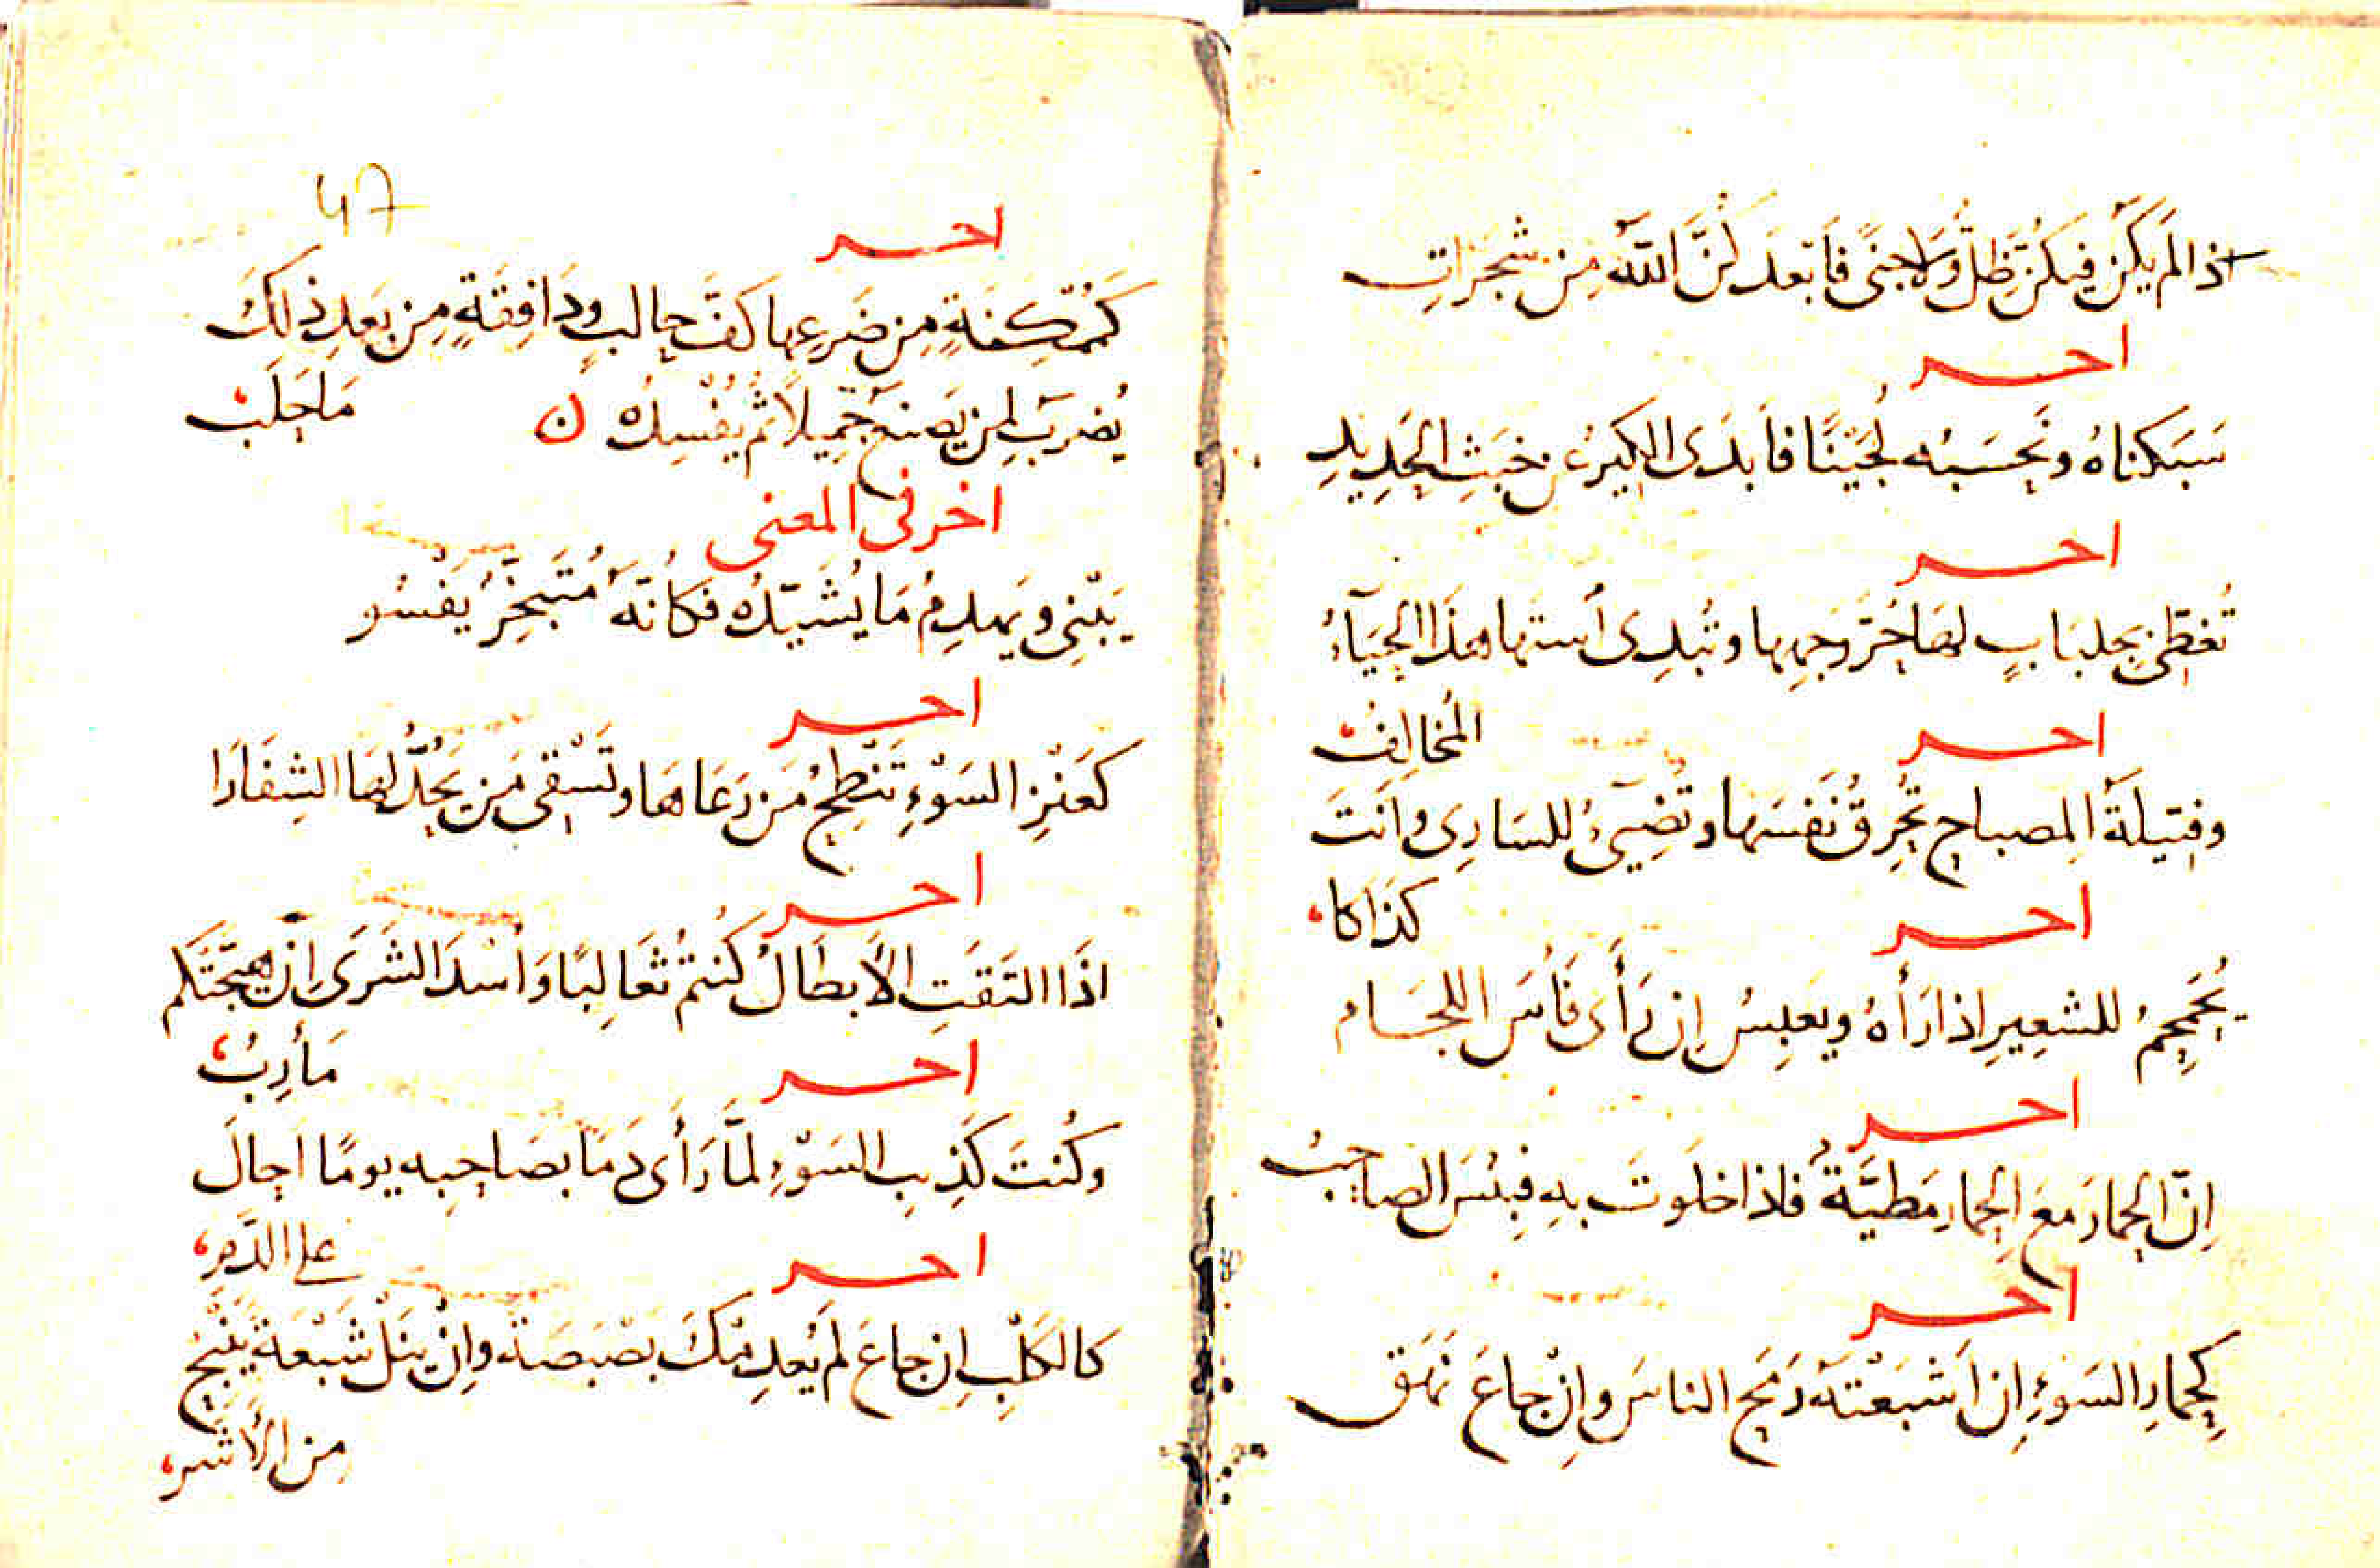 اذا لَم يَكُن فِيكُنَّ ظِلٌّ وَلَا جنًى فَأَبْعَدَكُنَّ اللّٰهُ مِن شَجَرَاتِ
اخر
سَبَكناهُ ونَحسَبُه لُجَينًا فأَبدَى الكِيرُ عن خبَثِ الحَدِيدِ
اخر
تُغطّى بجلبَابٍ لهَا حُرَّ وَجهِها وتُبدِى أستها هذا الحَيَآءُ
المُخالِفُ
اخر
وفتيلَةُ المِصباحِ تُحرِقُ نَفسَها وتُضِىءُ للسَارِى وأنتَ
كذَاكا
اخر
يُحَمحِمُ للشعِيرِ إذا رَأهُ ويَعبِسُ إن رَأَى فَأسَ اللجَام
اخر
إنّ الحِمارَ معَ الحِمارِ مَطِيَّةٌ فاذا خلَوتَ بهِ فبِئسَ الصاحِبُ
اخر
كحِمارِ السَوءِ إن أشبَعْتَهُ رَمَحَ الناسَ وإنْ جاعَ نَهَق
47
اخر
كَمُمْكِنَةٍ مِن ضَرعِها كَفَّ حالبٍ ودَافِقَةٍ مِن بَعدِ ذلكَ
مَا حَلَبْ
يُضرَبُ لِمَن يَصنعُ جَمِيلًا ثُمّ يُفْسِدُه ن
اخر فى المعنى
يَبْنِى ويَهدِمُ مَا يُشَيّدُهُ فكأنّهُ مُتَبَخِّرٌ يَفْسُو
اخر
كعَنْزِ السَوْءِ تَنْطِحُ مَن رَعَاهَا وتَسْقِى مَن يَحُدُّ لهَا الشِفَارَا
اخر
اذَا التَقَتِ الأبطَالُ كُنتُم ثَعَالِبًا وَأُسْدَ الشَرَى إن هيّجَتكم
مَأرِبُ
اخر
وكُنتَ كَذِئبِ السَوْءِ لمَّا رَأَى دَمًا بصَاحِبِه يومًا أحالَ
على الدَّمِ
اخر
كالكَلْبِ إن جاعَ لَم يُعدِمْكَ بَصْبَصَةً وإنْ يَنَلْ شَبْعَةً يَنْبَحْ
مِن الأَشَرِ